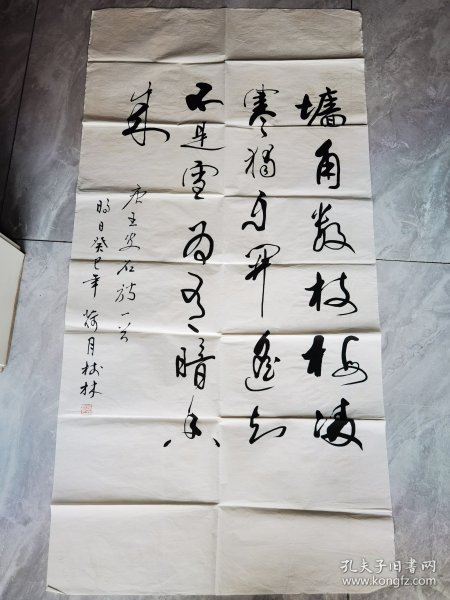 墙角数枝梅凌
寒独自开遥知
不是雪为有暗香
来
唐王安石诗一首
时日癸巳年荷月林
孔夫子旧书网
www.kongfz.com